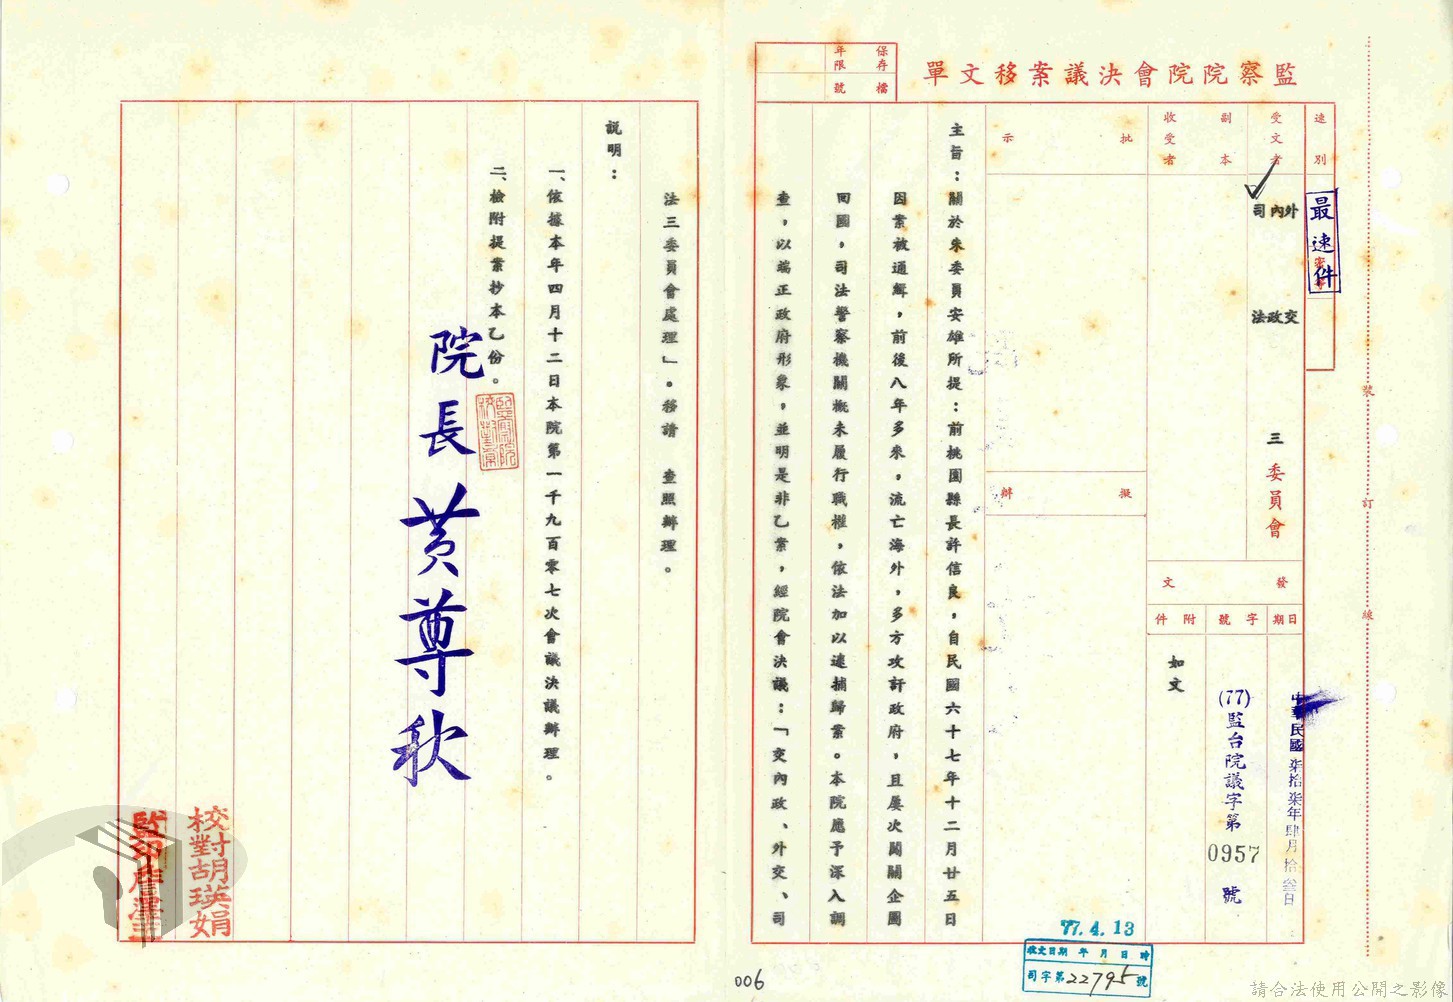 監察院院會決議案移文單
保存年限
檔號
速別
最速件
受文者
外交
內政
司法
三委員會
副本收受者
發文
日期
中華民國柒拾柒年肆月拾叁日
字號
(77)監台院議字第0957號
附件
如文
批示
擬辦
77.4.13
收文日期 年 月 日 時
司字第22795號
主旨：關於朱委員安雄所提：前桃園縣長許信良，自民國六十七年十二月廿五日
因案被通緝，前後八年多來，流亡海外，多方攻訐政府，且屢次闖關企圖
回國，司法警察機關概未履行職權，依法加以逮捕歸案。本院應予深入調
查，以端正政府形象，並明是非乙案，經院會決議：「交內政、外交、司
法三委員會處理」。移請　查照辦理。
說明：
一、依據本年四月十二日本院第一千九百零七次會議決議辦理。
二、檢附提案抄本乙份。
院長黃尊秋
校對胡瑛娟
裝
訂
線
006
請合法使用公開之影像